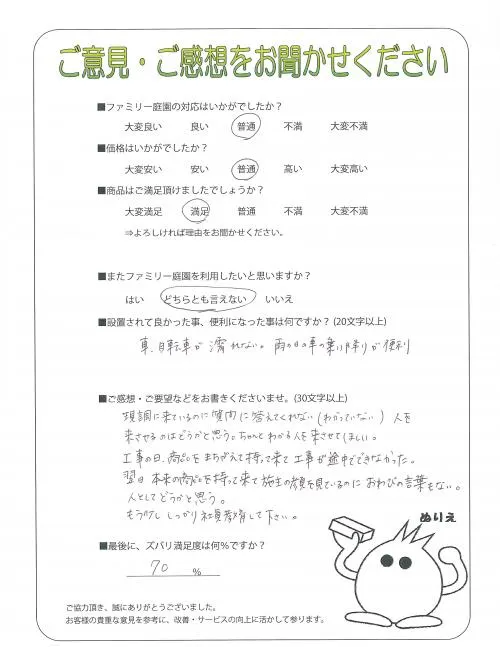 ご意見・ご感想をお聞かせください
■ファミリー庭園の対応はいかがでしたか？
大変良い 良い 普通 不満 大変不満
■価格はいかがでしたか？
大変安い 安い 普通 高い 大変高い
■商品はご満足頂けましたでしょうか？
大変満足 満足 普通 不満 大変不満
⇒よろしければ理由をお聞かせください。
■またファミリー庭園を利用したいと思いますか？
はい どちらとも言えない いいえ
■設置されて良かった事、便利になった事は何ですか？(20文字以上)
車、自転車が濡れない。雨の日の車の乗り降りが便利
■ご感想・ご要望などをお書きくださいませ。(30文字以上)
現調に来ているのに質問に答えてくれない(わかっていない)人を
来させるのはどうかと思う。ちゃんとわかる人を来させてほしい。
工事の日、商品をまちがえて持って来て工事が途中でできなかった。
翌日本来の商品を持って来て施主の顔を見ているのにおわびの言葉もない。
人としてどうかと思う。
もう少ししっかり社員教育して下さい。
ぬりえ
■最後に、ズバリ満足度は何%ですか？
70 %
ご協力頂き、誠にありがとうございました。
お客様の貴重な意見を参考に、改善・サービスの向上に活かして参ります。